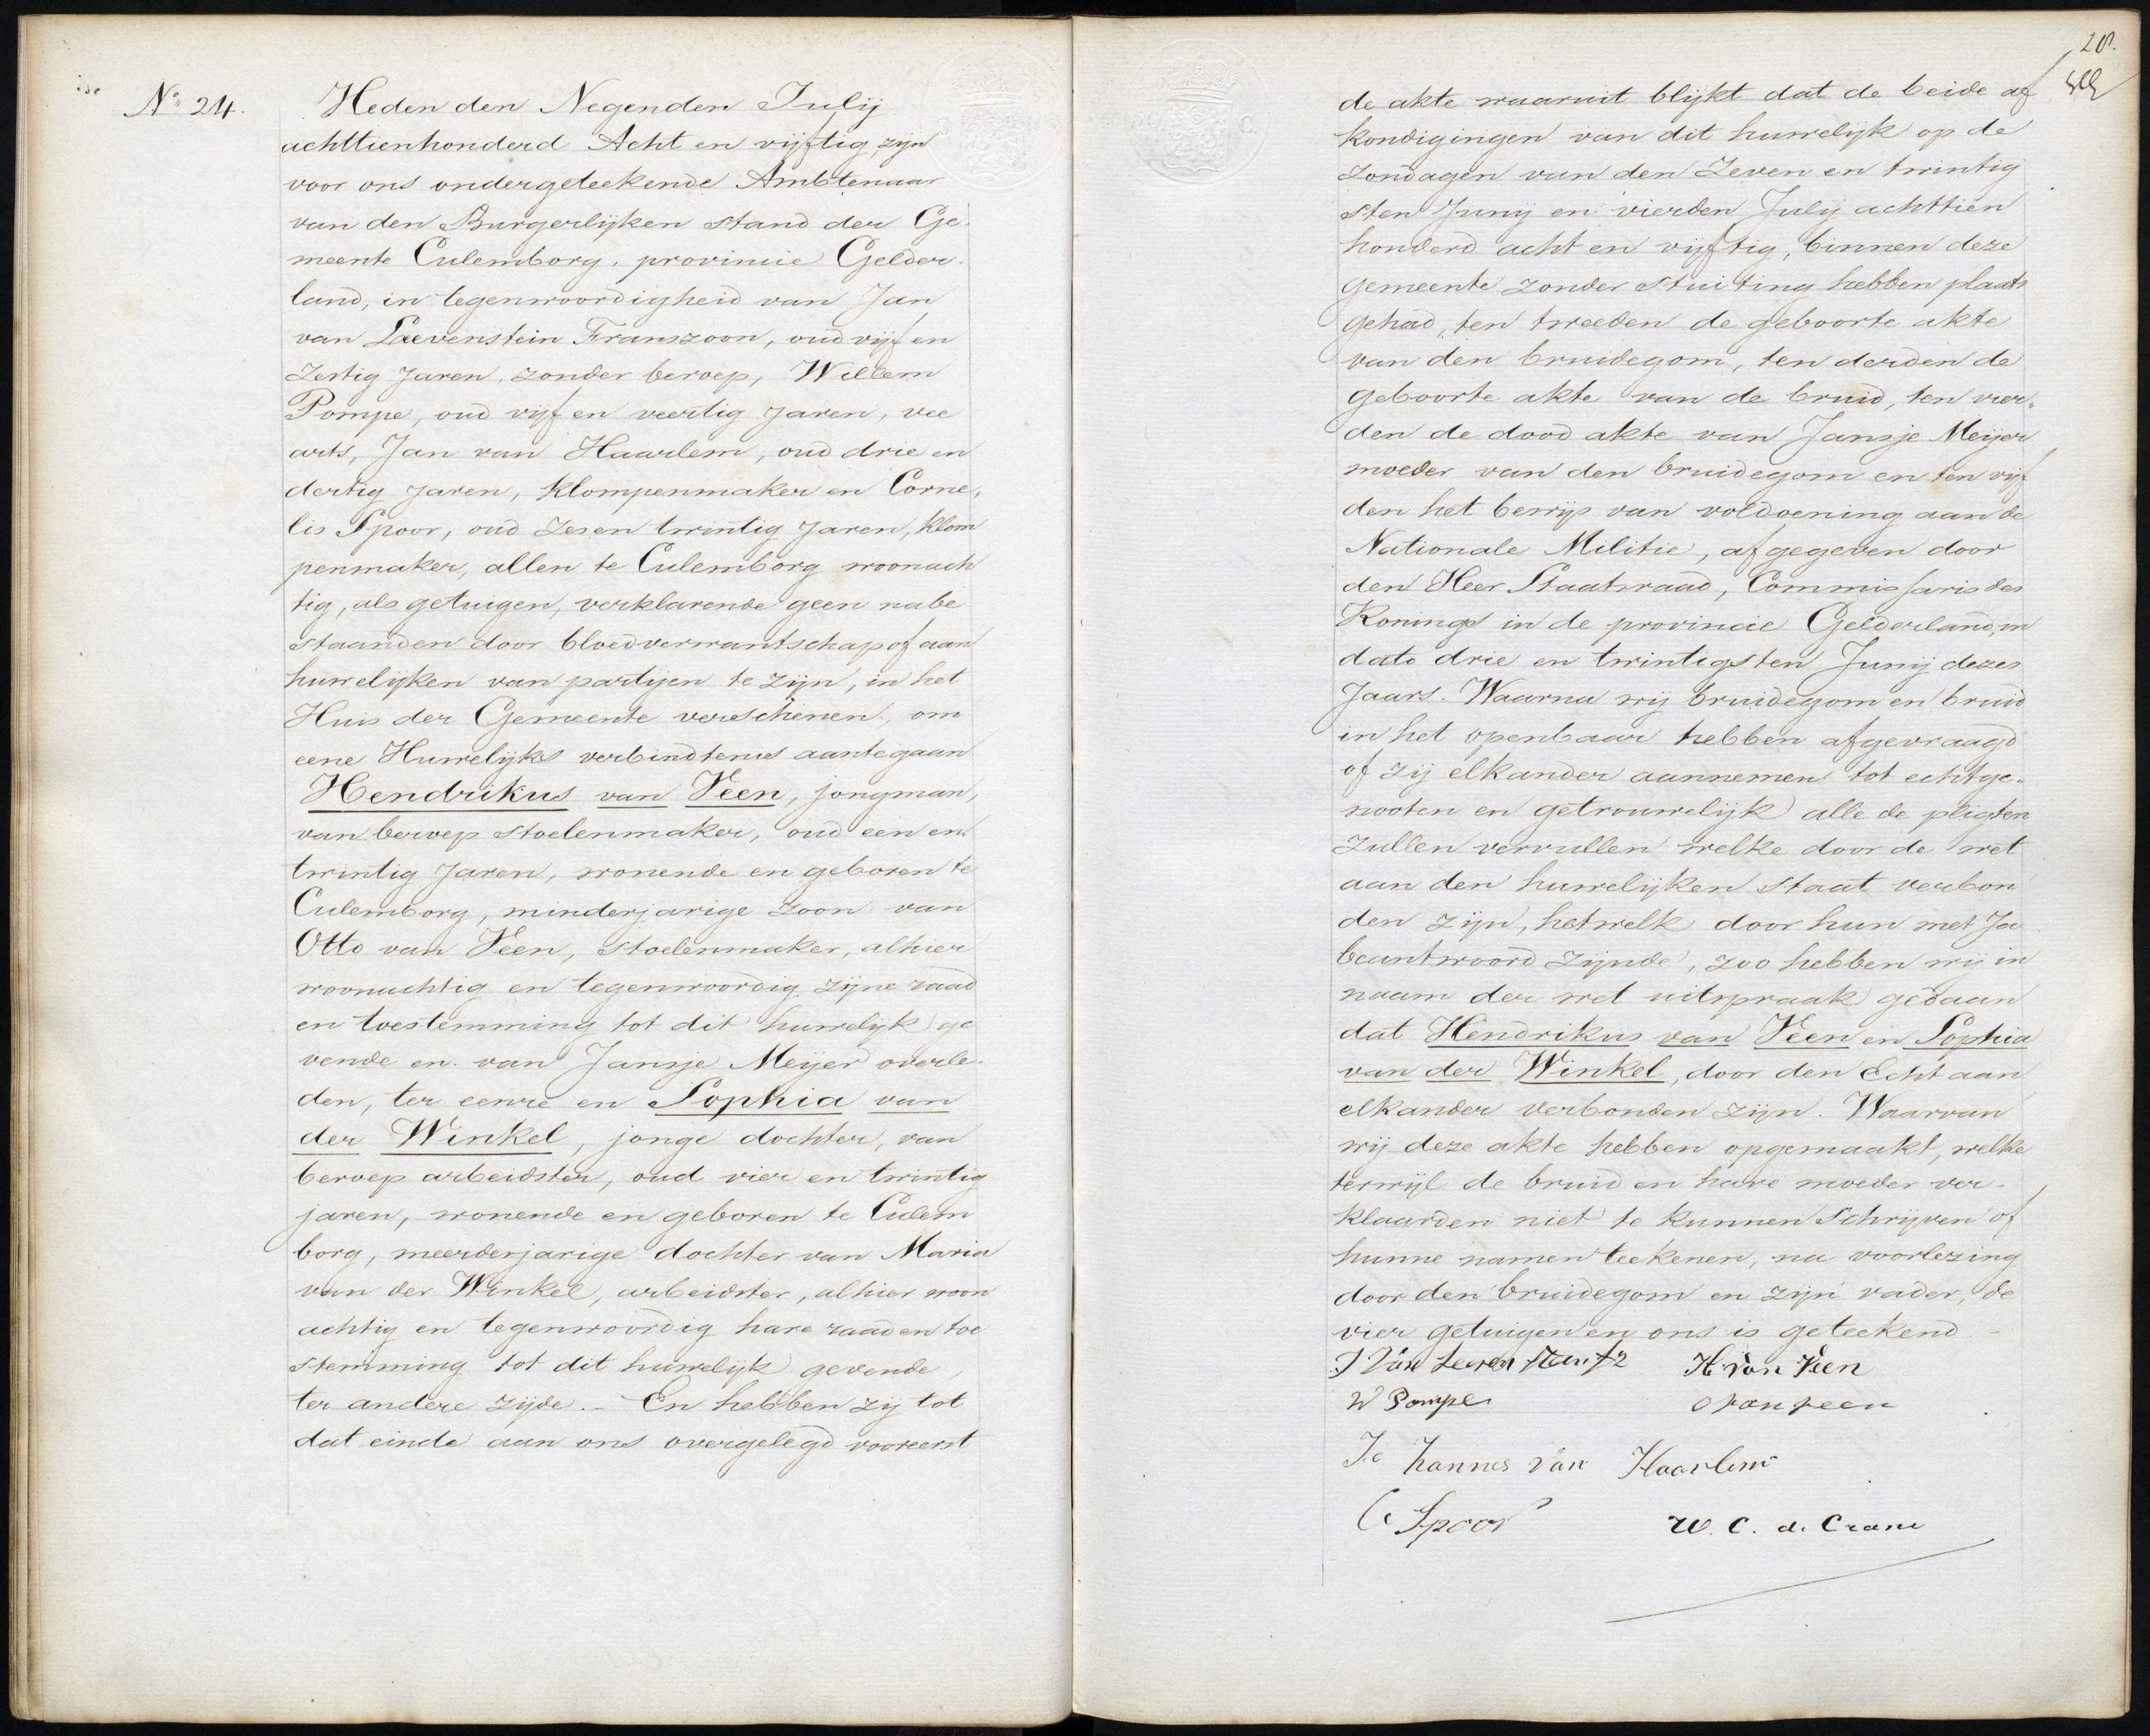 No. 24.
Heden den Negenden Julij
achttienhonderd Acht en vijftig, zijn
voor ons ondergeteekende Ambtenaar
van den Burgerlijken stand der Ge-
meente Culemborg, provincie Gelder-
land, in tegenwoordigheid van Jan
van Leevenstein Franszoon, oud vijf en
zestig Jaren, zonder beroep, Willem
Pompe, oud vijf en veertig Jaren, vee
arts, Jan van Haarlem, oud drie en
dertig Jaren, Klompenmaker en Corne,
lis Spoor, oud zes en twintig Jaren, klom
penmaker, allen te Culemborg woonach
tig, als getuigen, verklarende geen nabe
staanden door bloedverwantschap of aan
huwelijken van partijen te zijn, in het
Huis der Gemeente verschenen, om
eene Huwelijks verbindtenis aantegaan
Hendrikus van Veen, jongman,
van beroep stoelenmaker, oud een en
twintig Jaren, wonende en geboren te
Culemborg, minderjarige zoon van
Otto van Veen, stoelenmaker, alhier
woonachtig en tegenwoordig zijne raad
en toestemming tot dit huwelijk ge
vende en van Jansje Meijer overle-
den, ter eenre en Sophia van
der Winkel, jonge dochter, van
beroep arbeidster, oud vier en twintig
jaren, wonende en geboren te Culem
borg, meerderjarige dochter van Maria
van der Winkel, arbeidster, alhier woon
achtig en tegenwoordig hare raad en toe
stemming tot dit huwelijk gevende,
ter andere zijde. - En hebben zij tot
dat einde aan ons overgelegd vooreerst
28.
de akte waaruit blijkt dat de beide af
kondigingen van dit huwelijk op de
Zondagen van den Zeven en twintig
sten Junij en vierden Julij achttien
honderd acht en vijftig, binnen deze
gemeente zonder stuiting hebben plaats
gehad, ten tweeden de geboorte akte
van den bruidegom, ten derden de
geboorte akte van de bruid, ten vier-
den de dood akte van Jansje Meijer
moeder van den bruidegom en ten vijf
den het bewijs van voldoening aan de
Nationale Militie, afgegeven door
den Heer Staatsraad, Commissaris des
Konings in de provincie Gelderland, in
dato drie en twintigsten Junij dezes
Jaars. Waarna wij bruidegom en bruid
in het openbaar hebben afgevraagd
of zij elkander aannemen tot echtge-
nooten en getrouwelijk alle de pligten
zullen vervullen welke door de wet
aan den huwelijken staat verbon
den zijn, hetwelk door hun met Ja
beantwoord zijnde, zoo hebben wij in
naam der wet uitspraak gedaan
dat Hendrikus van Veen en Sophia
van der Winkel, door den Echt aan
elkander verbonden zijn. Waarvan
wij deze akte hebben opgemaakt, welke
terwijl de bruid en hare moeder ver-
klaarden niet te kunnen Schrijven of
hunne namen teekenen, na voorlezing
door den bruidegom en zijn vader, de
vier getuigen en ons is geteekend -
J Van Leevenstein Fz H. van Veen
W Pompe O van Veen
Johannes van Haarlem
C Spoor W. C. de Crane